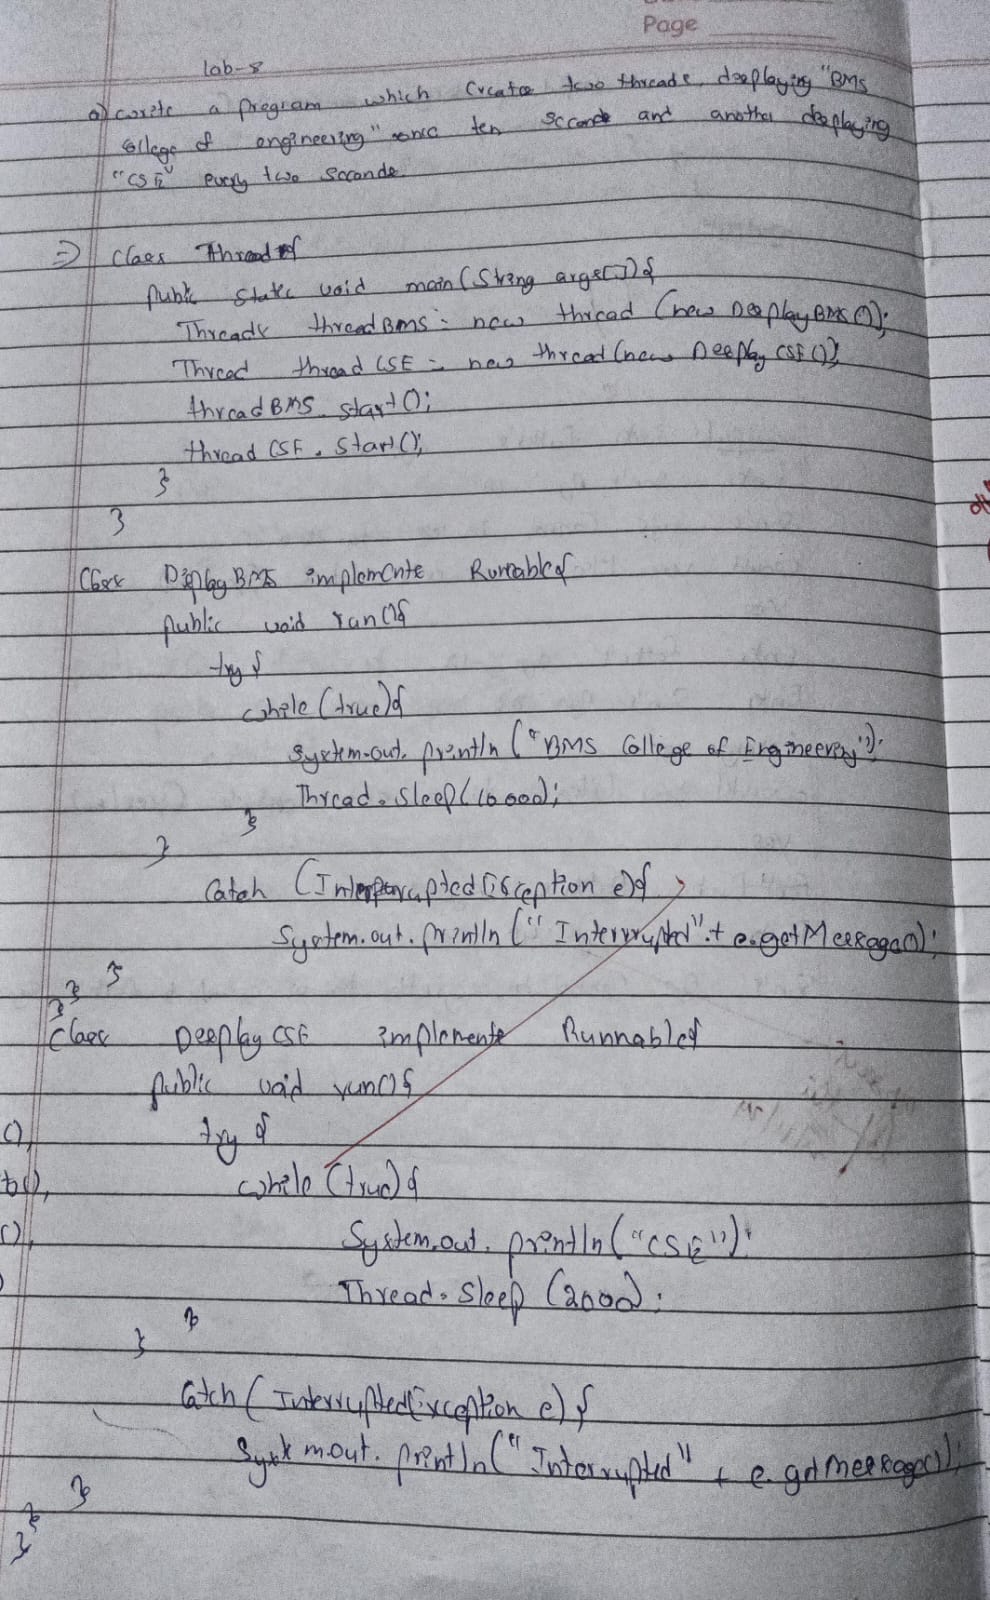 Page
Lab-8
a) Write a program which creates two threads, displaying "BMS
College of engineering" once ten seconds and another displaying
"CSE" every two seconds.
=> Class Thread {
public static void main(String args[]){
Thread threadBMS = new thread (new DisplayBMS());
Thread thread CSE = new thread (new Display CSE());
threadBMS.start();
thread CSE.start();
}
}
Class DisplayBMS implements Runnable{
public void run(){
try {
while (true){
System.out.println ("BMS College of Engineering");
Thread.sleep(10000);
}
}
Catch (InterruptedException e){
System.out.println ("Interrupted" + e.getMessage());
}
}
}
Class Display CSE implements Runnable{
public void run(){
try {
while (true) {
System.out.println("CSE");
Thread.sleep (2000);
}
}
Catch (InterruptedException e) {
System.out.println("Interrupted" + e.getMessage());
}
}
}